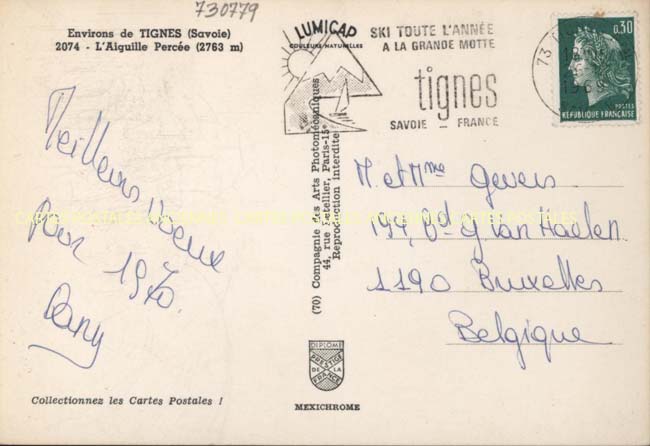 730779
Environs de TIGNES (Savoie)
2074 - L'Aiguille Percée (2763 m)
LUMICAP
COULEURS NATURELLES
SKI TOUTE L'ANNÉE
A LA GRANDE MOTTE
tignes
SAVOIE _ FRANCE
73
1969
0,30
POSTES
REPUBLIQUE FRANÇAISE
Meilleurs voeux
pour 1970.
Dany
(70) Compagnie des Arts Photomécaniques
44, rue Letellier, Paris-15e
Reproduction interdite
M. et Mme Gevers
194, Bd G Van Haelen
1190 Bruxelles
Belgique
DIPLOME
PRESTIGE
DE LA
FRANCE
MEXICHROME
Collectionnez les Cartes Postales !